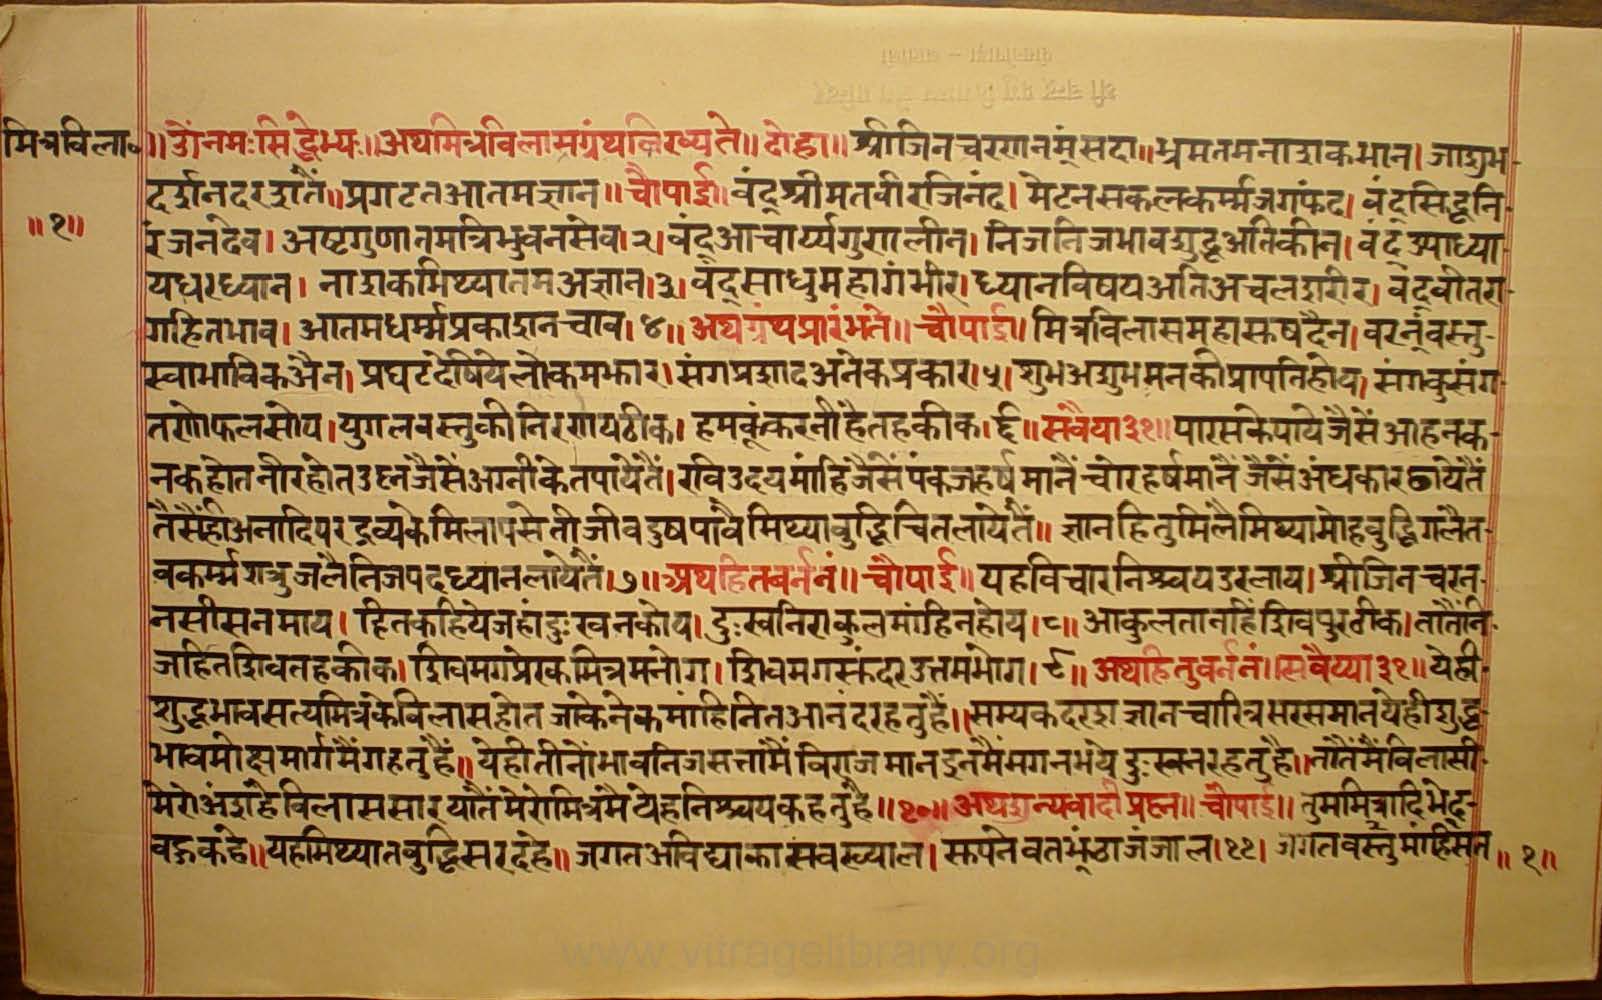 मित्रविला०
॥१॥
॥ओंनमःसिद्धेभ्यः॥अथमित्रविलासग्रंथलिख्यते॥दोहा॥श्रीजिनचरणनमूंसदा॥भ्रमतमनाशकभान।जाशुभ-
दर्शनदरशतैं॥प्रगटतआतमज्ञान॥चौपाई॥वंदूश्रीमतवीरजिनंद।मेटनसकलकर्म्मजगफंद।वंदूसिद्धनि-
रंजनदेव।अष्टगुणातमत्रिभुवनसेव।२।वंदूआचार्य्यगुणलीन।निजनिजभावशुद्धअतिकीन।वंदूउपाध्या-
यधरध्यान।नाशकमिथ्यातमअज्ञान।३।वंदूसाधुमहागंभीर।ध्यानविषयअतिअचलशरीर।वंदूवीतरा-
गहितभाव।आतमधर्म्मप्रकाशनचाव।४॥अथग्रंथप्रारंभते॥चौपाई॥मित्रविलासमहासुषदैन।वरनूंवस्तु-
स्वाभाविकअैन।प्रघटदेषियेलोकमझार।संगप्रशादअनेकप्रकार।५।शुभअशुभमनकीप्रापतिहोय।संगकुसंग-
तणोफलसोय।युगलवस्तुकीनिरणयठीक।हमकूंकरनीहैतहकीक।६॥सवैया३१॥पारसकेपायेजैसेंआहनक-
नकहोतनीरहोतउष्नजैसेंअग्नीकेतपायेतैं।रविउदयमांहिजैसेंपंकजहर्षमानैंचोरहर्षमानैंजैसेंअंधकारछायेतैं
तैसैंहीअनादिपरद्रव्यकेमिलापसेतीजीवदुषपावैमिथ्याबुद्धिचितलायेतैं॥ज्ञानहितुमिलैमिथ्यामोहबुद्धिगलैत-
वकर्म्मशत्रुजलैनिजपदध्यानलायेतैं।७॥अथहितबर्ननं॥चौपाई॥यहविचारनिश्चयउरलाय।श्रीजिनचरन-
नसीसनमाय।हितकहियेजहांदुःखनकोय।दुःखनिराकुलमांहिनहोय।८॥आकुलतानहिंशिवपुरठीक।तातैंनि-
जहितशिवतहकीक।शिवमगप्रेरकमित्रमनोग।शिवमगसुंदरउत्तमभोग।९॥अथहितुवर्ननं॥सवैय्या३१॥येही-
शुद्धभावसत्यमित्रकेविलासहोतजाकेनेकमांहिनितआनंदरहतुहैं॥सम्यकदरशज्ञानचारित्रसरसमानयेहीशुद्ध-
भावमोक्षमार्गमैंगहतुहैं॥येहीतीनोंभावनिजसत्तामैंविराजमानइनमैंमगनभयेदुःखनरहतुहै॥तातैंमैंविलासी-
मेरोअंशहेविलाससारयातैंमेरोमित्रमैयेहनिश्चयकहतुहै॥१०॥अथशुन्यवादीप्रष्न॥चौपाई॥तुममित्रादिभेद-
वङ्गकहे॥यहमिथ्यातबुद्धिसरदहे॥जगतअविद्याकासवख्याल।सुपनेवतझूंठाजंजाल।११।जगतवस्तुमांहिसत
॥१॥
www.vitragelibrary.org